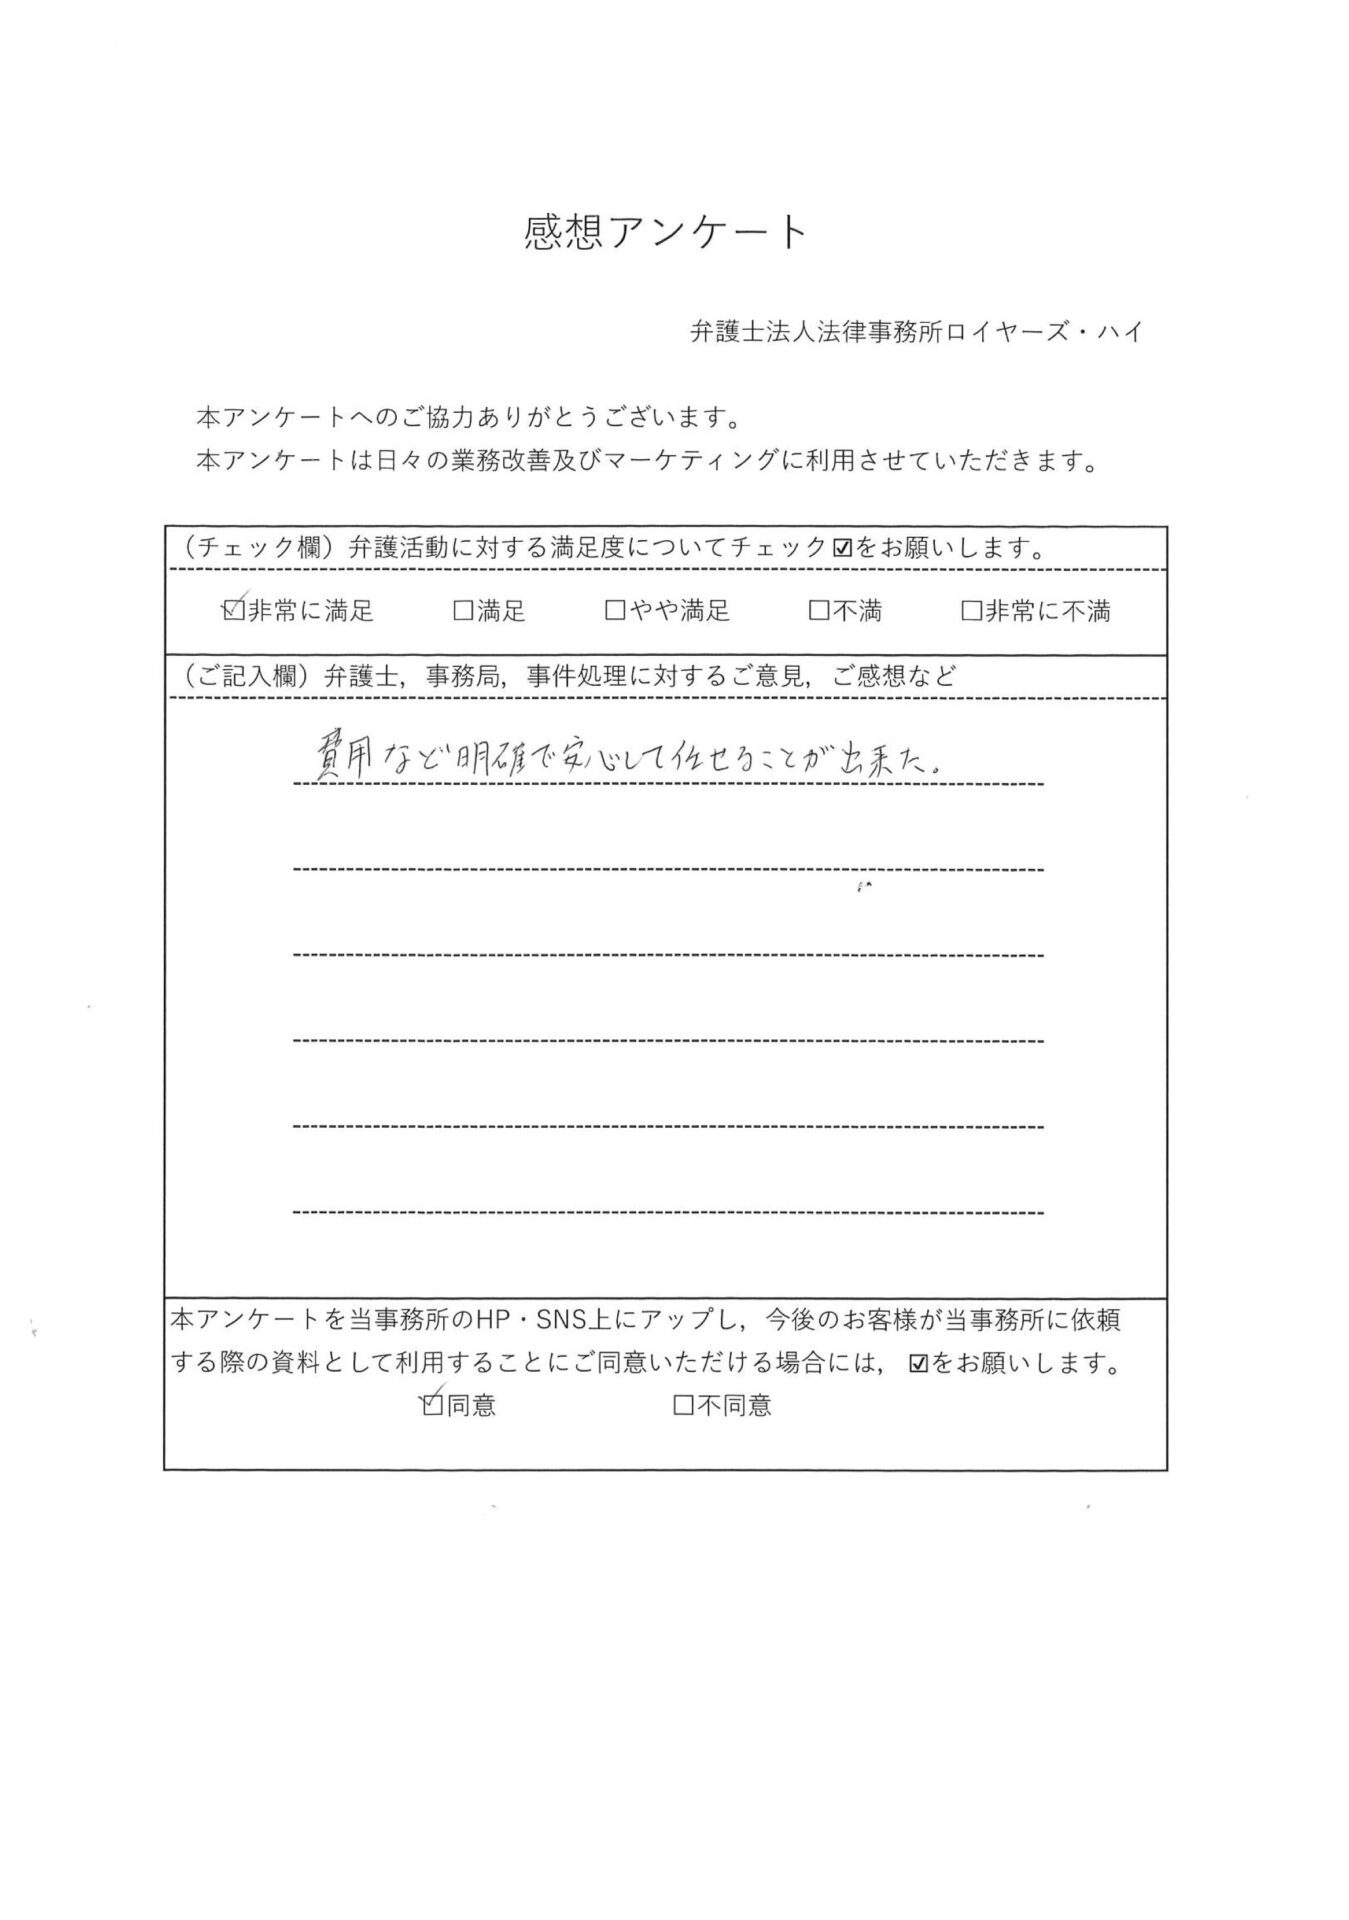 感想アンケート
弁護士法人法律事務所ロイヤーズ・ハイ
本アンケートへのご協力ありがとうございます。
本アンケートは日々の業務改善及びマーケティングに利用させていただきます。
（チェック欄）弁護活動に対する満足度についてチェック☑をお願いします。
☑非常に満足 □満足 □やや満足 □不満 □非常に不満
（ご記入欄）弁護士，事務局，事件処理に対するご意見，ご感想など
費用など明確で安心して任せることが出来た。
本アンケートを当事務所のHP・SNS上にアップし，今後のお客様が当事務所に依頼
する際の資料として利用することにご同意いただける場合には，☑をお願いします。
☑同意 □不同意